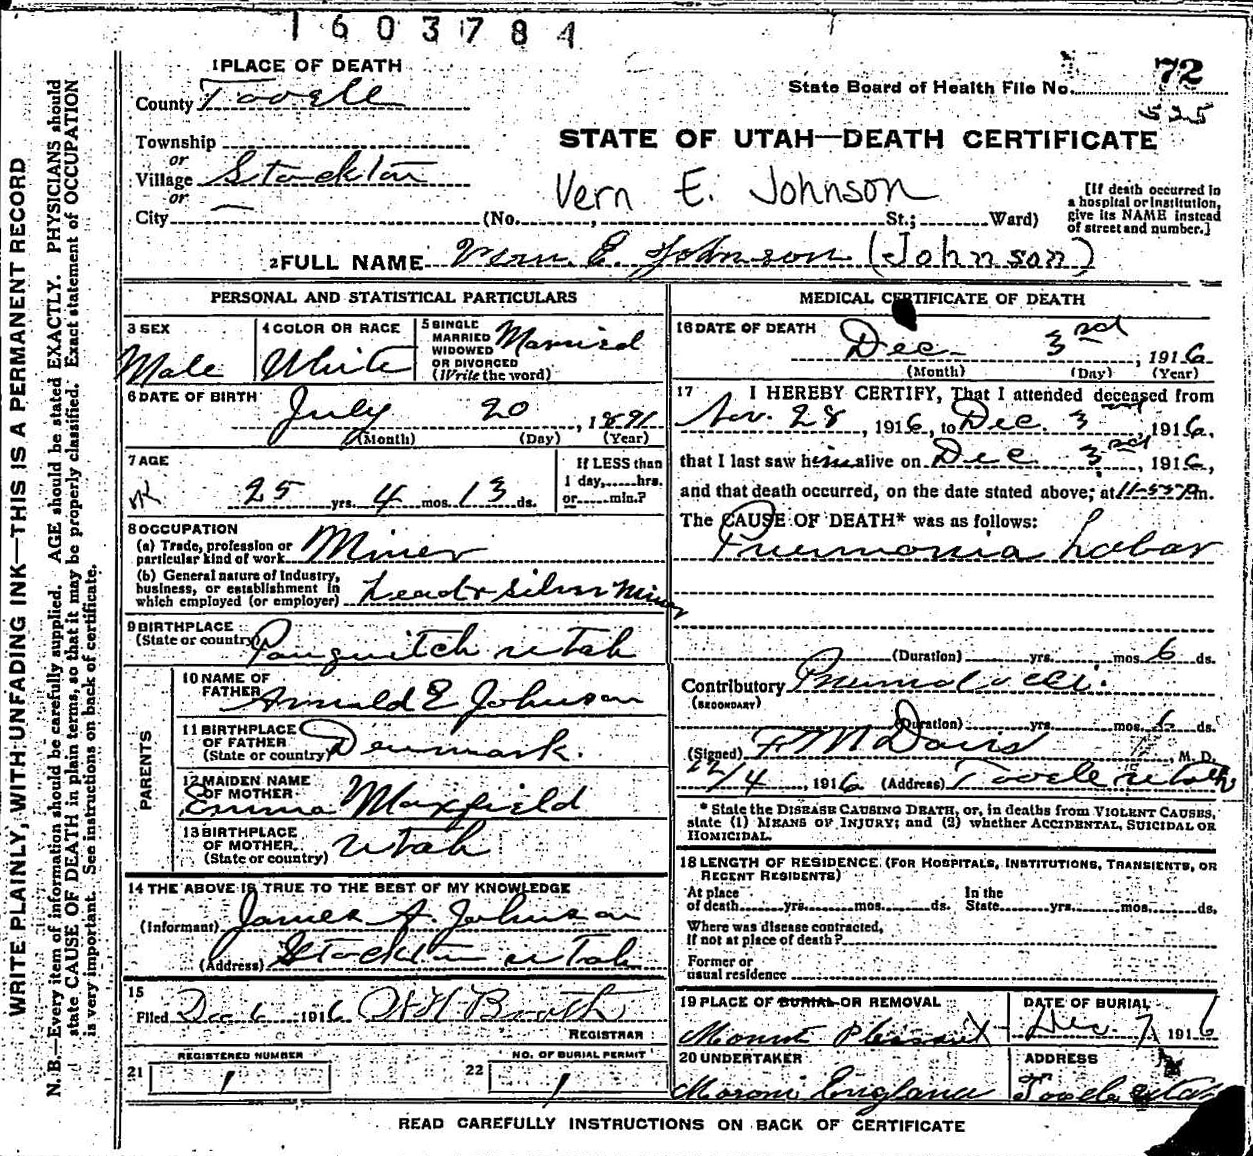 1603784
1 PLACE OF DEATH
County Tooele
State Board of Health File No. 72
525
Township
or
Village Stockton
or
City — (No. , St.; Ward)
STATE OF UTAH—DEATH CERTIFICATE
Vern E. Johnson
[If death occurred in
a hospital or institution,
give its NAME instead
of street and number.]
2 FULL NAME Vern E. Johnson (Johnson)
PERSONAL AND STATISTICAL PARTICULARS
3 SEX
Male
4 COLOR OR RACE
White
5 SINGLE
MARRIED
WIDOWED
OR DIVORCED
(Write the word)
Married
6 DATE OF BIRTH
July 20, 1891
(Month) (Day) (Year)
7 AGE
25 yrs. 4 mos. 13 ds.
If LESS than
1 day, hrs.
or min.?
8 OCCUPATION
(a) Trade, profession or
particular kind of work Miner
(b) General nature of industry,
business, or establishment in
which employed (or employer) Lead & Silver Mines
9 BIRTHPLACE
(State or country) Panguitch Utah
PARENTS
10 NAME OF
FATHER Arnold E Johnson
11 BIRTHPLACE
OF FATHER
(State or country) Denmark.
12 MAIDEN NAME
OF MOTHER
Emma Maxfield
13 BIRTHPLACE
OF MOTHER
(State or country) Utah
14 THE ABOVE IS TRUE TO THE BEST OF MY KNOWLEDGE
(Informant) James A. Johnson
(Address) Stockton Utah
15
Filed Dec 6 1916
REGISTRAR
REGISTERED NUMBER
21 1
NO. OF BURIAL PERMIT
22 1
MEDICAL CERTIFICATE OF DEATH
16 DATE OF DEATH
Dec 3rd, 1916
(Month) (Day) (Year)
17 I HEREBY CERTIFY, That I attended deceased from
Nov. 28, 1916, to Dec. 3rd, 1916,
that I last saw him alive on Dec 3rd, 1916,
and that death occurred, on the date stated above, at 11-55 P m.
The CAUSE OF DEATH* was as follows:
Pneumonia Lobar
(Duration) yrs. mos. 6 ds.
Contributory Pneumococci.
(SECONDARY)
(Duration) yrs. mos. 6 ds.
(Signed) F M Davis, M. D.
12/4, 1916 (Address) Tooele Utah
* State the DISEASE CAUSING DEATH, or, in deaths from VIOLENT CAUSES,
state (1) MEANS OF INJURY; and (2) whether ACCIDENTAL, SUICIDAL OR
HOMICIDAL.
18 LENGTH OF RESIDENCE (FOR HOSPITALS, INSTITUTIONS, TRANSIENTS, OR
RECENT RESIDENTS)
At place
of death yrs. mos. ds.
In the
State yrs. mos. ds.
Where was disease contracted,
If not at place of death?
Former or
usual residence
19 PLACE OF BURIAL OR REMOVAL
Mount Pleasant
DATE OF BURIAL
Dec. 7, 1916
20 UNDERTAKER
Moroni England
ADDRESS
Tooele Utah
READ CAREFULLY INSTRUCTIONS ON BACK OF CERTIFICATE
WRITE PLAINLY, WITH UNFADING INK—THIS IS A PERMANENT RECORD
N. B.—Every item of information should be carefully supplied. AGE should be stated EXACTLY. PHYSICIANS should
state CAUSE OF DEATH in plain terms, so that it may be properly classified. Exact statement of OCCUPATION
is very important. See instructions on back of certificate.